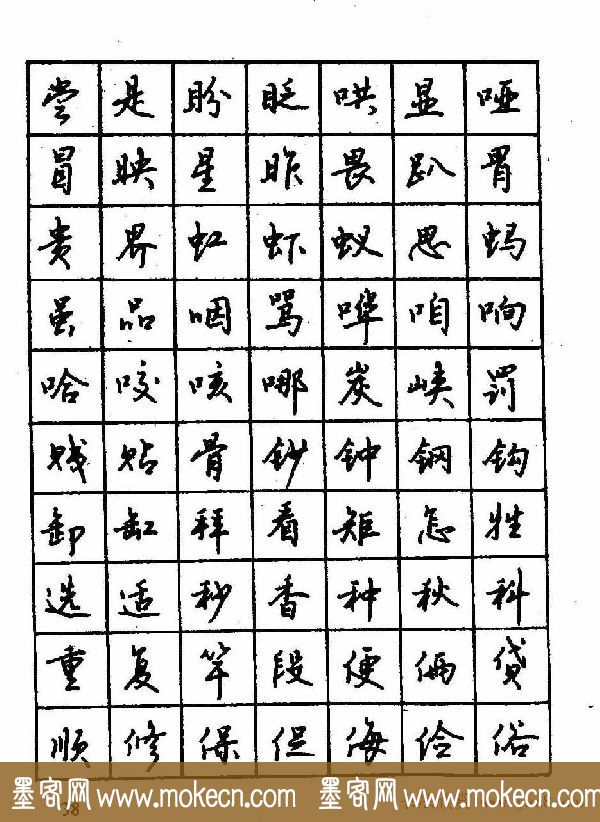 尝是盼眨哄显哑
冒映星昨畏趴胃
贵界虹虾蚁思蚂
虽品咽骂哗咱响
哈咬咳哪炭峡罚
贱贴骨钞钟钢钩
卸缸拜看矩怎牲
选适秒香种秋科
重复竿段便俩贷
顺修保促侮俭俗
38
墨客网 www.mokecn.com 墨客网 www.mokecn.com